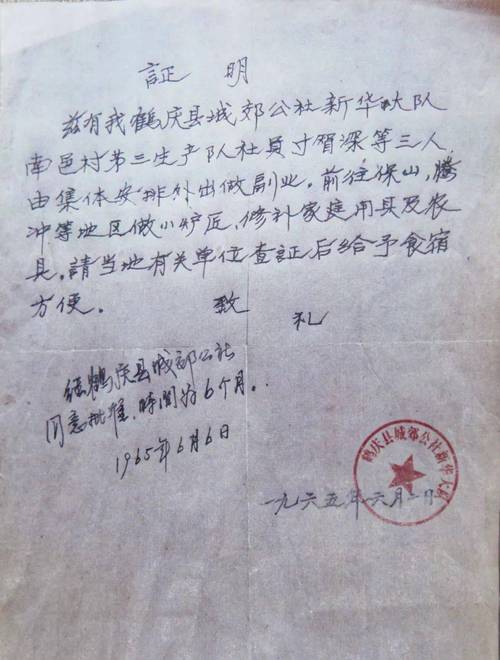 証 明
兹有我鹤庆县城郊公社新华大队
南邑村第三生产队社员寸腎深等三人，
由集体安排外出做副业。前往保山，腾
冲等地区做小炉匠、修补家庭用具及农
具。請当地有关单位查証后给予食宿
方便。 致 礼
经鹤庆县城郊公社
同意批准，時間为6个月。
1965年6月6日
鹤庆县城郊公社新华大队
一九六五年六月二日